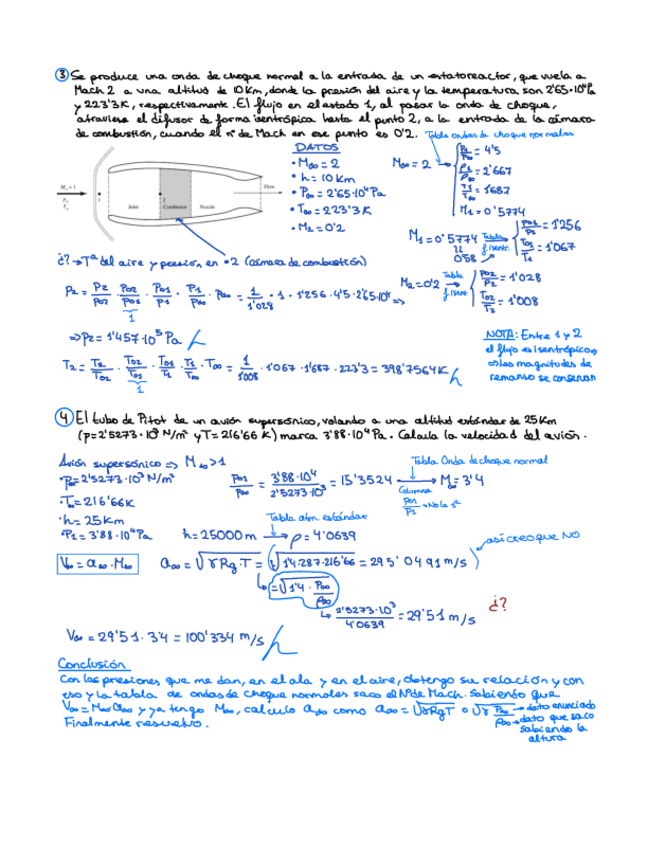 ③ Se produce una onda de choque normal a la entrada de un estatoreactor, que vuela a
Mach 2 a una altitud de 10 Km, donde la presión del aire y la temperatura son 2'65·10⁴ Pa
y 223'3 K, respectivamente. El flujo en el estado 1, al pasar la onda de choque,
atraviesa el difusor de forma isentrópica hasta el punto 2, a la entrada de la cámara
de combustión, cuando el nº de Mach en ese punto es 0'2. Tabla ondas de choque normales
DATOS
• M∞ = 2
• h = 10 Km
• P∞ = 2'65·10⁴ Pa
• T∞ = 223'3 K
• M₂ = 0'2
M∞ = 2 → P₁/P∞ = 4'5
ρ₁/ρ∞ = 2'667
T₁/T∞ = 1'687
M₁ = 0'5774
Inlet Combustor Nozzle Flow
M₁ = 0'5774 Tabla f. isent. P01/P1 = 1'256
0'58 T01/T1 = 1'067
¿? → Tª del aire y presión en •2 (cámara de combustión)
M₂ = 0'2 Tabla f. isent. P02/P2 = 1'028
T02/T2 = 1'008
P₂ = P2/P02 · P02/P01 · P01/P1 · P1/P∞ · P∞ = 1/1'028 · 1 · 1'256 · 4'5 · 2'65·10⁴ =>
1
=> P₂ = 1'457·10⁵ Pa
NOTA: Entre 1 y 2
el flujo es isentrópico
=> las magnitudes de
remanso se conservan
T₂ = T2/T02 · T02/T01 · T01/T1 · T1/T∞ · T∞ = 1/1'008 · 1'067 · 1'687 · 223'3 = 398'7564 K
1
④ El tubo de Pitot de un avión supersónico, volando a una altitud estándar de 25 Km
(p = 2'5273·10³ N/m² y T = 216'66 K) marca 3'88·10⁴ Pa. Calcula la velocidad del avión.
Avión supersónico => M∞ > 1
• P∞ = 2'5273·10³ N/m²
• T∞ = 216'66 K
• h = 25 Km
• P1 = 3'88·10⁴ Pa
P01/P∞ = 3'88·10⁴/2'5273·10³ = 15'3524 → M∞ = 3'4
Tabla Onda de choque normal
Columna P01/P1 → No la 1ª
Tabla atm. estándar
h = 25000 m → ρ = 4'0639
V∞ = a∞ · M∞
a∞ = √γRgT = √1'4·287·216'66 = 295'0491 m/s
así creo que NO
= √1'4 · P∞/ρ∞
2'5273·10³/4'0639 = 29'51 m/s
¿?
V∞ = 29'51 · 3'4 = 100'334 m/s
Conclusión
Con las presiones que me dan, en el ala y en el aire, obtengo su relación y con
eso y la tabla de ondas de choque normales saco el Nº de Mach. Sabiendo que
V∞ = M∞ a∞ y ya tengo M∞, calculo a∞ como a∞ = √γRgT o √γ P∞/ρ∞ → dato enunciado
→ dato que saco
Finalmente resuelvo.
sabiendo la
altura